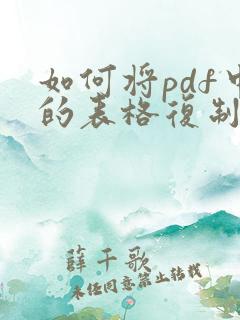 如何将pdf中
的表格復制
薛千歌
未经同意禁止转载